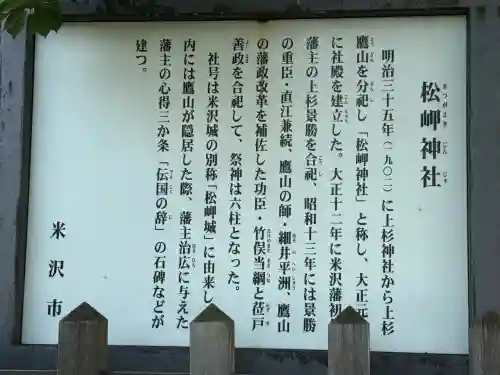 松岬神社
明治三十五年(一九〇二)に上杉神社から上杉
鷹山を分祀し「松岬神社」と称し、大正元
に社殿を建立した。大正十二年に米沢藩初
藩主の上杉景勝を合祀、昭和十三年には景勝
の重臣・直江兼続、鷹山の師・細井平洲、鷹山
の藩政改革を補佐した功臣・竹俣当綱と莅戸
善政を合祀して、祭神は六柱となった。
社号は米沢城の別称「松岬城」に由来し
内には鷹山が隠居した際、藩主治広に与えた
藩主の心得三か条「伝国の辞」の石碑などが
建つ。
米沢市